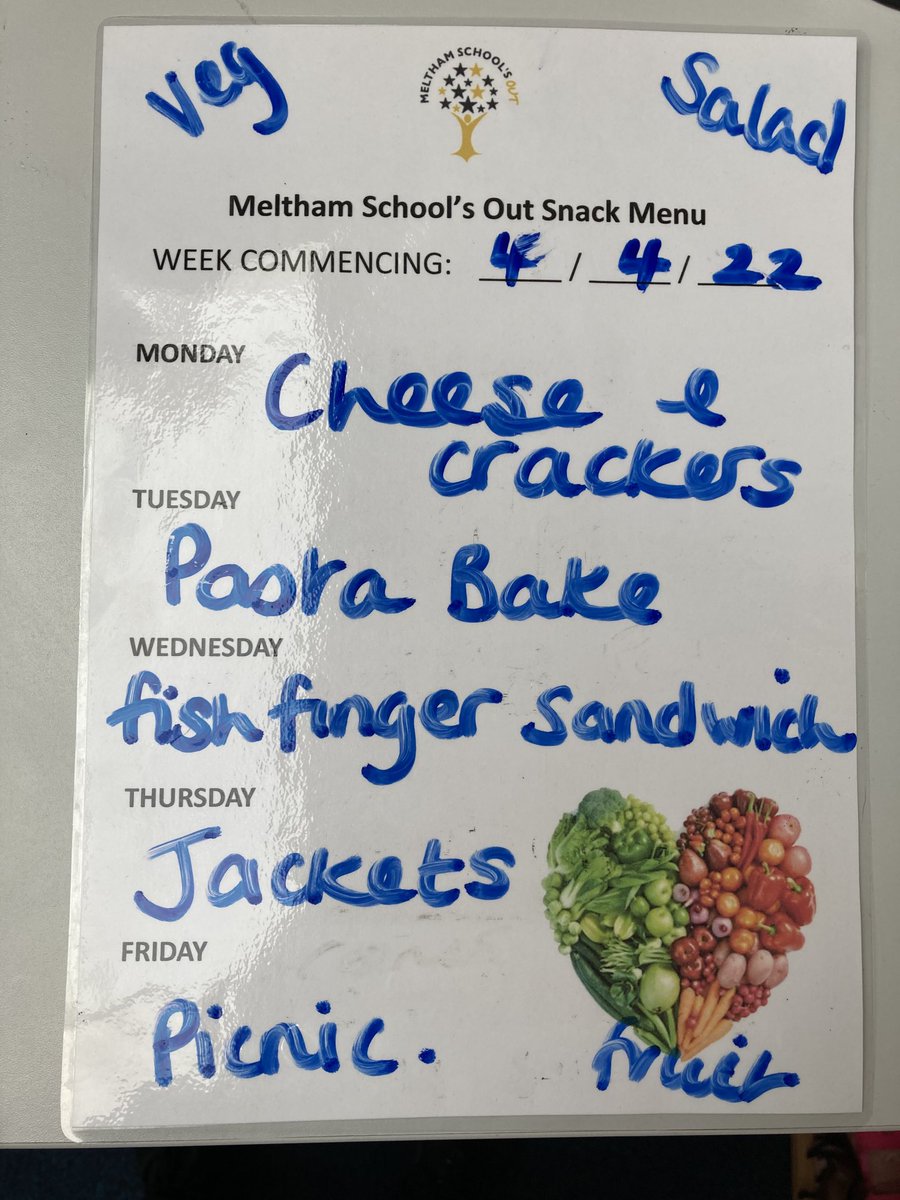 Veg
MELTHAM SCHOOL'S OUT
Salad
Meltham School's Out Snack Menu
WEEK COMMENCING: 4 / 4 / 22
MONDAY
Cheese &
crackers
TUESDAY
Pasta Bake
WEDNESDAY
fish finger sandwich
THURSDAY
Jackets
FRIDAY
Picnic.
fruit